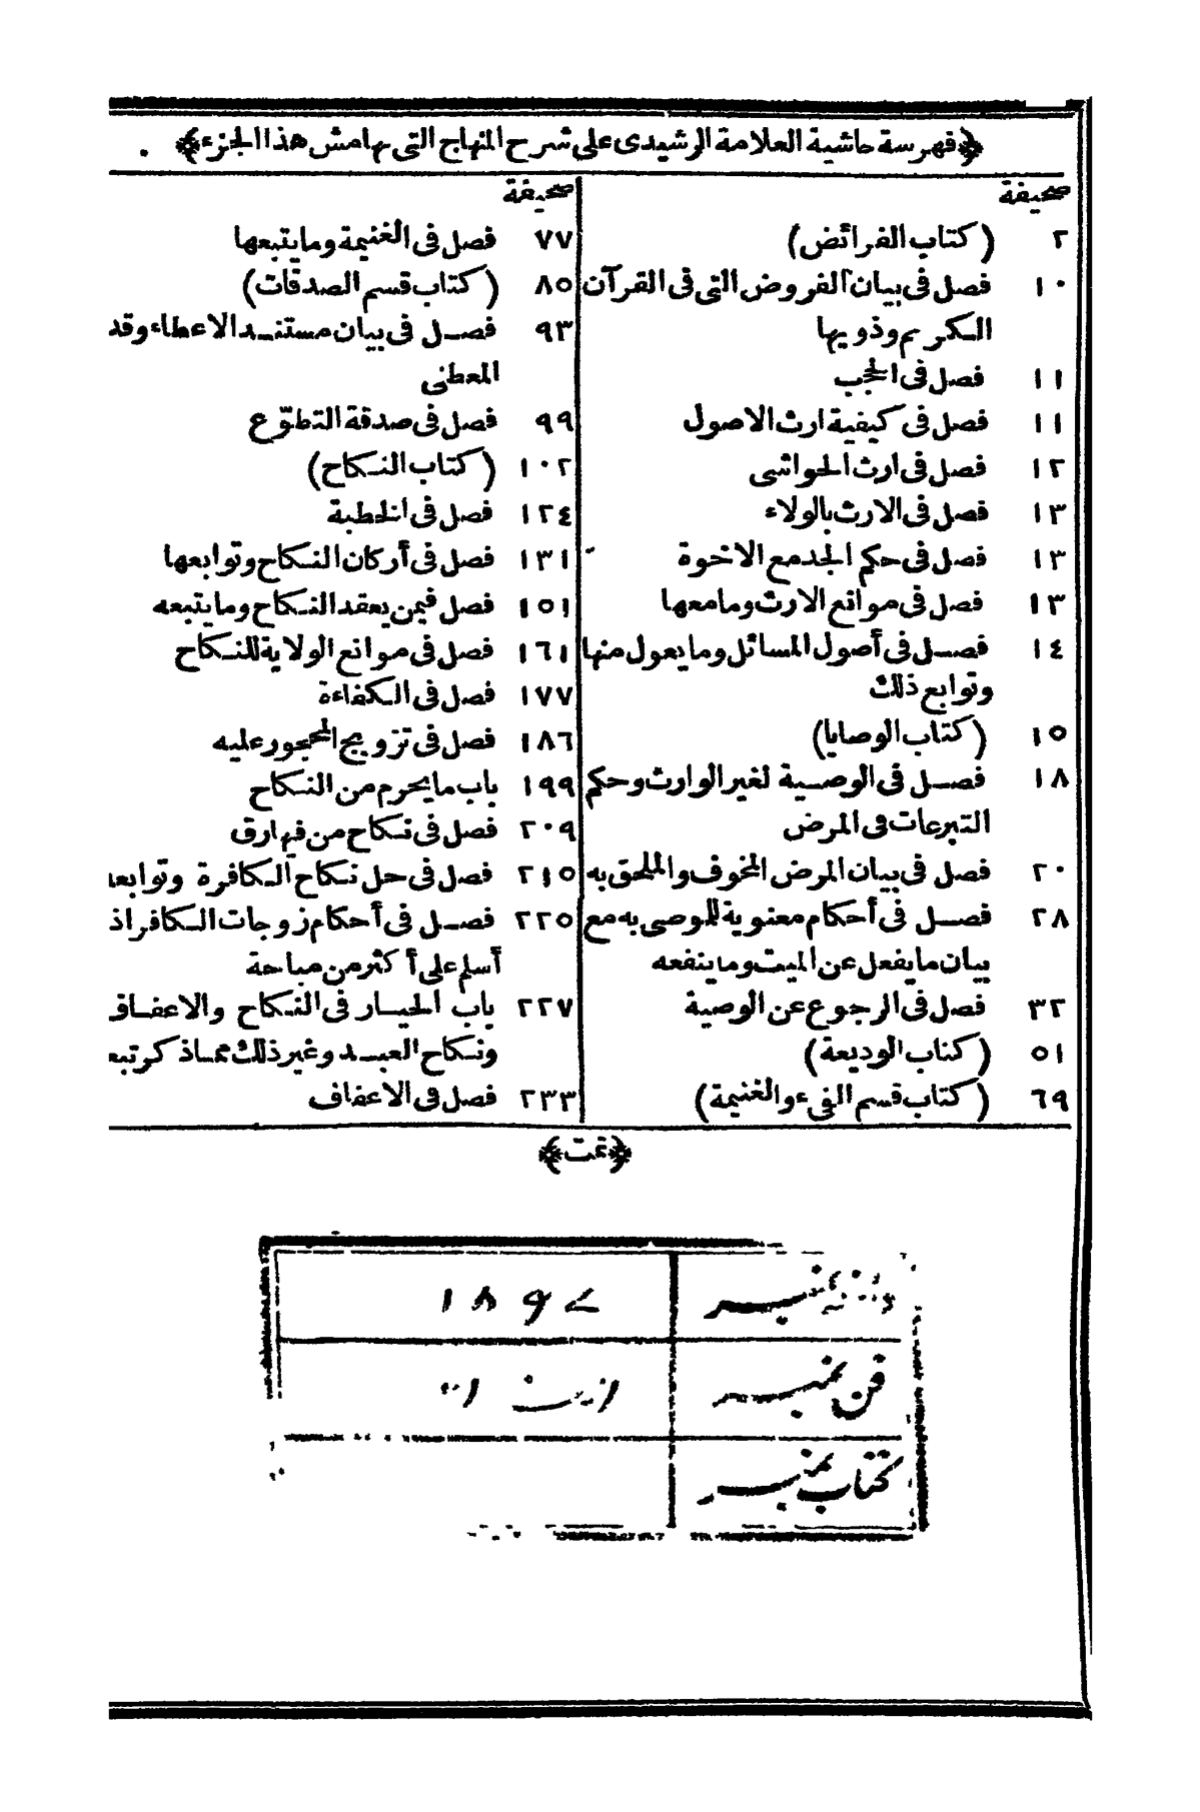 ﴿فهرسة حاشية العلامة الرشيدى على شرح المنهاج التى بهامش هذا الجزء﴾
صحيفة
٢ (كتاب الفرائض)
١٠ فصل فى بيان الفروض التى فى القرآن
الكريم وذويها
١١ فصل فى الحجب
١١ فصل فى كيفية ارث الاصول
١٢ فصل فى ارث الحواشى
١٣ فصل فى الارث بالولاء
١٣ فصل فى حكم الجد مع الاخوة
١٣ فصل فى موانع الارث وما معها
١٤ فصل فى أصول المسائل وما يعول منها
وتوابع ذلك
١٥ (كتاب الوصايا)
١٨ فصل فى الوصية لغير الوارث وحكم
التبرعات فى المرض
٢٠ فصل فى بيان المرض المخوف والملحق به
٢٨ فصل فى أحكام معنوية للموصى به مع
بيان ما يفعل عن الميت وما ينفعه
٣٢ فصل فى الرجوع عن الوصية
٥١ (كتاب الوديعة)
٦٩ (كتاب قسم الفىء والغنيمة)
صحيفة
٧٧ فصل فى الغنيمة وما يتبعها
٨٥ (كتاب قسم الصدقات)
٩٣ فصل فى بيان مستند الاعطاء وقد
المعطى
٩٩ فصل فى صدقة التطوّع
١٠٢ (كتاب النكاح)
١٢٤ فصل فى الخطبة
١٣١ فصل فى أركان النكاح وتوابعها
١٥١ فصل فيمن يعقد النكاح وما يتبعه
١٦١ فصل فى موانع الولاية للنكاح
١٧٧ فصل فى الكفاءة
١٨٦ فصل فى تزويج المحجور عليه
١٩٩ باب ما يحرم من النكاح
٢٠٩ فصل فى نكاح من فيها رق
٢١٥ فصل فى حل نكاح الكافرة وتوابعه
٢٢٥ فصل فى أحكام زوجات الكافر اذ
أسلم على أكثر من مباحة
٢٢٧ باب الخيار فى النكاح والاعفاف
ونكاح العبد وغير ذلك مما ذكر تبعا
٢٣٣ فصل فى الاعفاف
﴿تمت﴾
نمبر ١٨٩٧
فن نمبر
كتاب نمبر